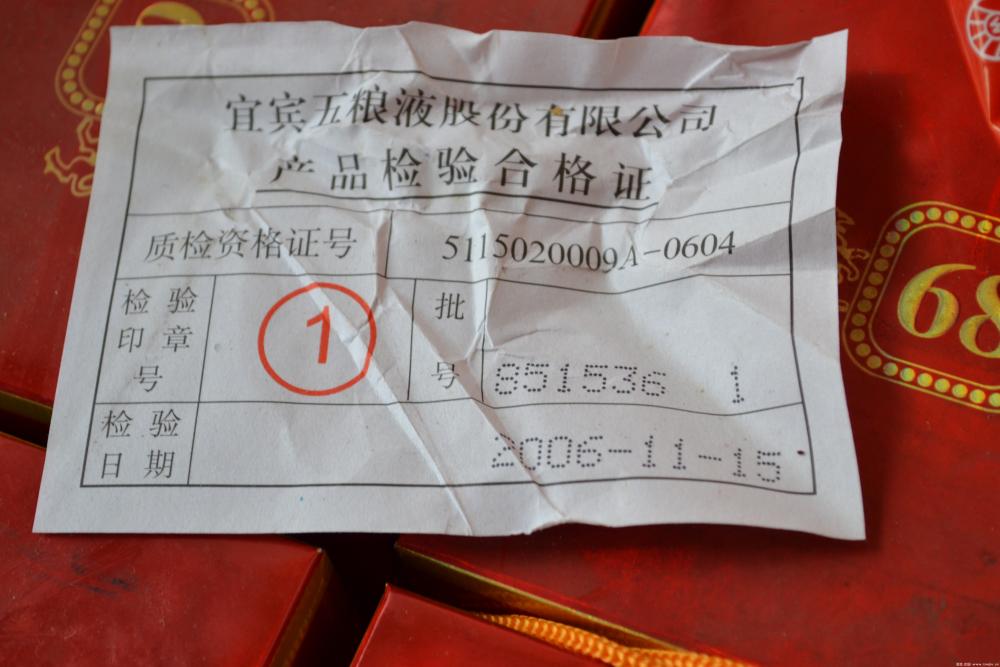 宜宾五粮液股份有限公司
产品检验合格证
质检资格证号 5115020009A-0604
检验印章号 1 批号 851536 1
检验日期 2006-11-15
68